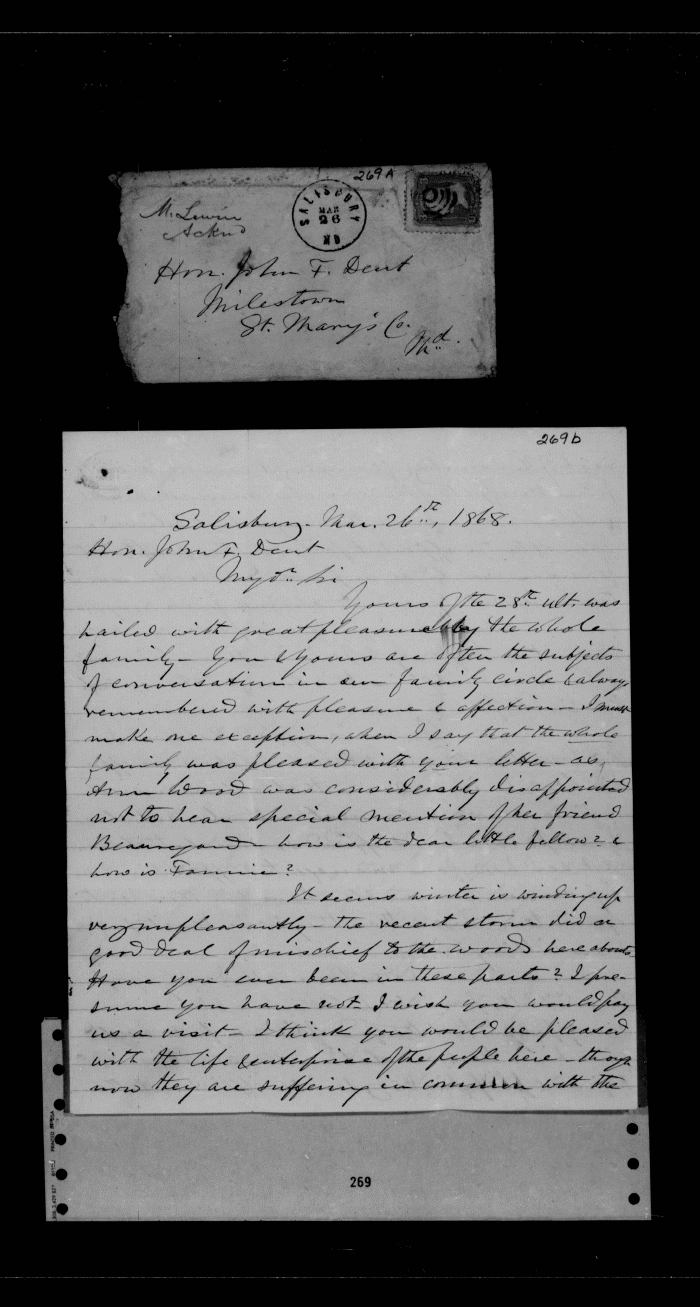 269A
M. Lewin
Acknd
SALISBURY
MAR
26
MD
Hon. John F. Dent
Milestown
St. Mary's Co.
Md.
269b
Salisbury Mar. 26th, 1868.
Hon. John F. Dent
My dr Sir
Yours of the 28th ult. was
hailed with great pleasure by the whole
family - You & Yours are often the subjects
of conversation in our family circle & always
remembered with pleasure & affection - I must
make one exception, when I say that the whole
family was pleased with your letter - as,
Ann Wood was considerably disappointed
not to hear special mention of her friend
Beauregard - how is the dear little fellow? &
how is Fannie?
It seems winter is winding up
very unpleasantly - the recent storm did a
good deal of mischief to the woods hereabouts
Have you ever been in these parts? I pre-
sume you have not I wish you would pay
us a visit I think you would be pleased
with the life & enterprise of the people here - though
now they are suffering in common with the
269